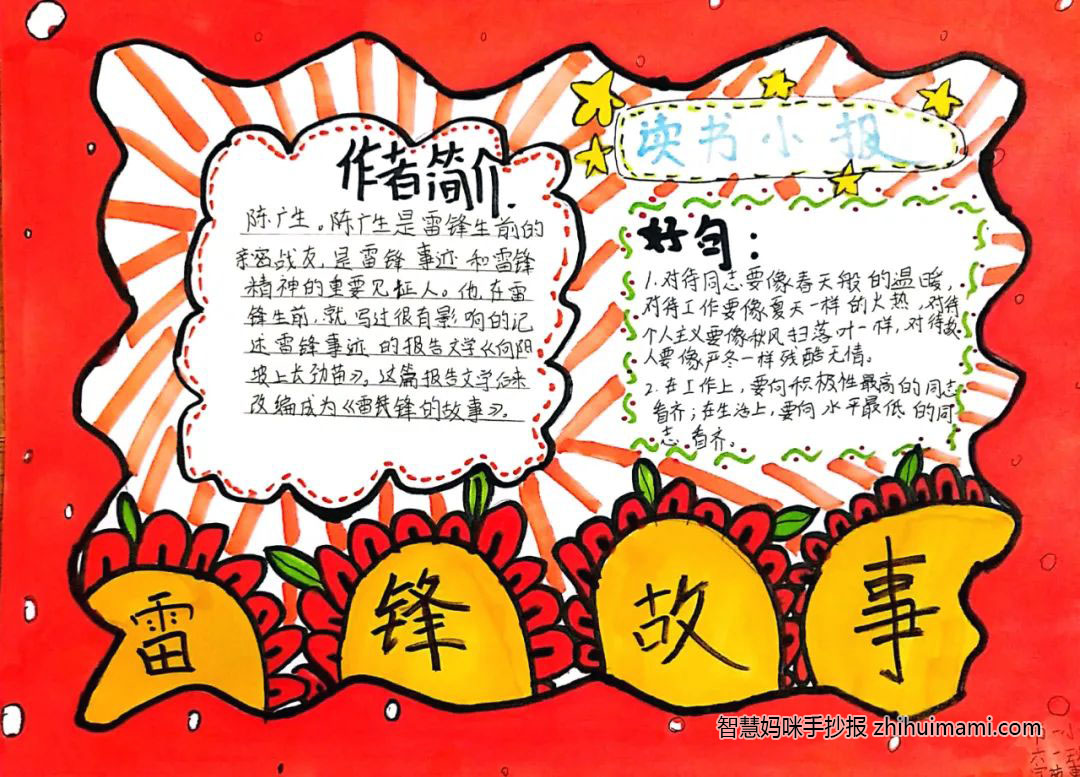 作者简介
陈广生。陈广生是雷锋生前的
亲密战友,是雷锋事迹和雷锋
精神的重要见证人。他在雷
锋生前,就写过很有影响的记
述雷锋事迹的报告文学《向阳
坡上长劲苗》。这篇报告文学后来
改编成为《雷锋的故事》。
读书小报
好句:
1.对待同志要像春天般的温暖,
对待工作要像夏天一样的火热,对待
个人主义要像秋风扫落叶一样,对待敌
人要像严冬一样残酷无情。
2.在工作上,要向积极性最高的同志
看齐;在生活上,要向水平最低的同
志看齐。
雷锋故事
智慧妈咪手抄报 zhihuimami.com